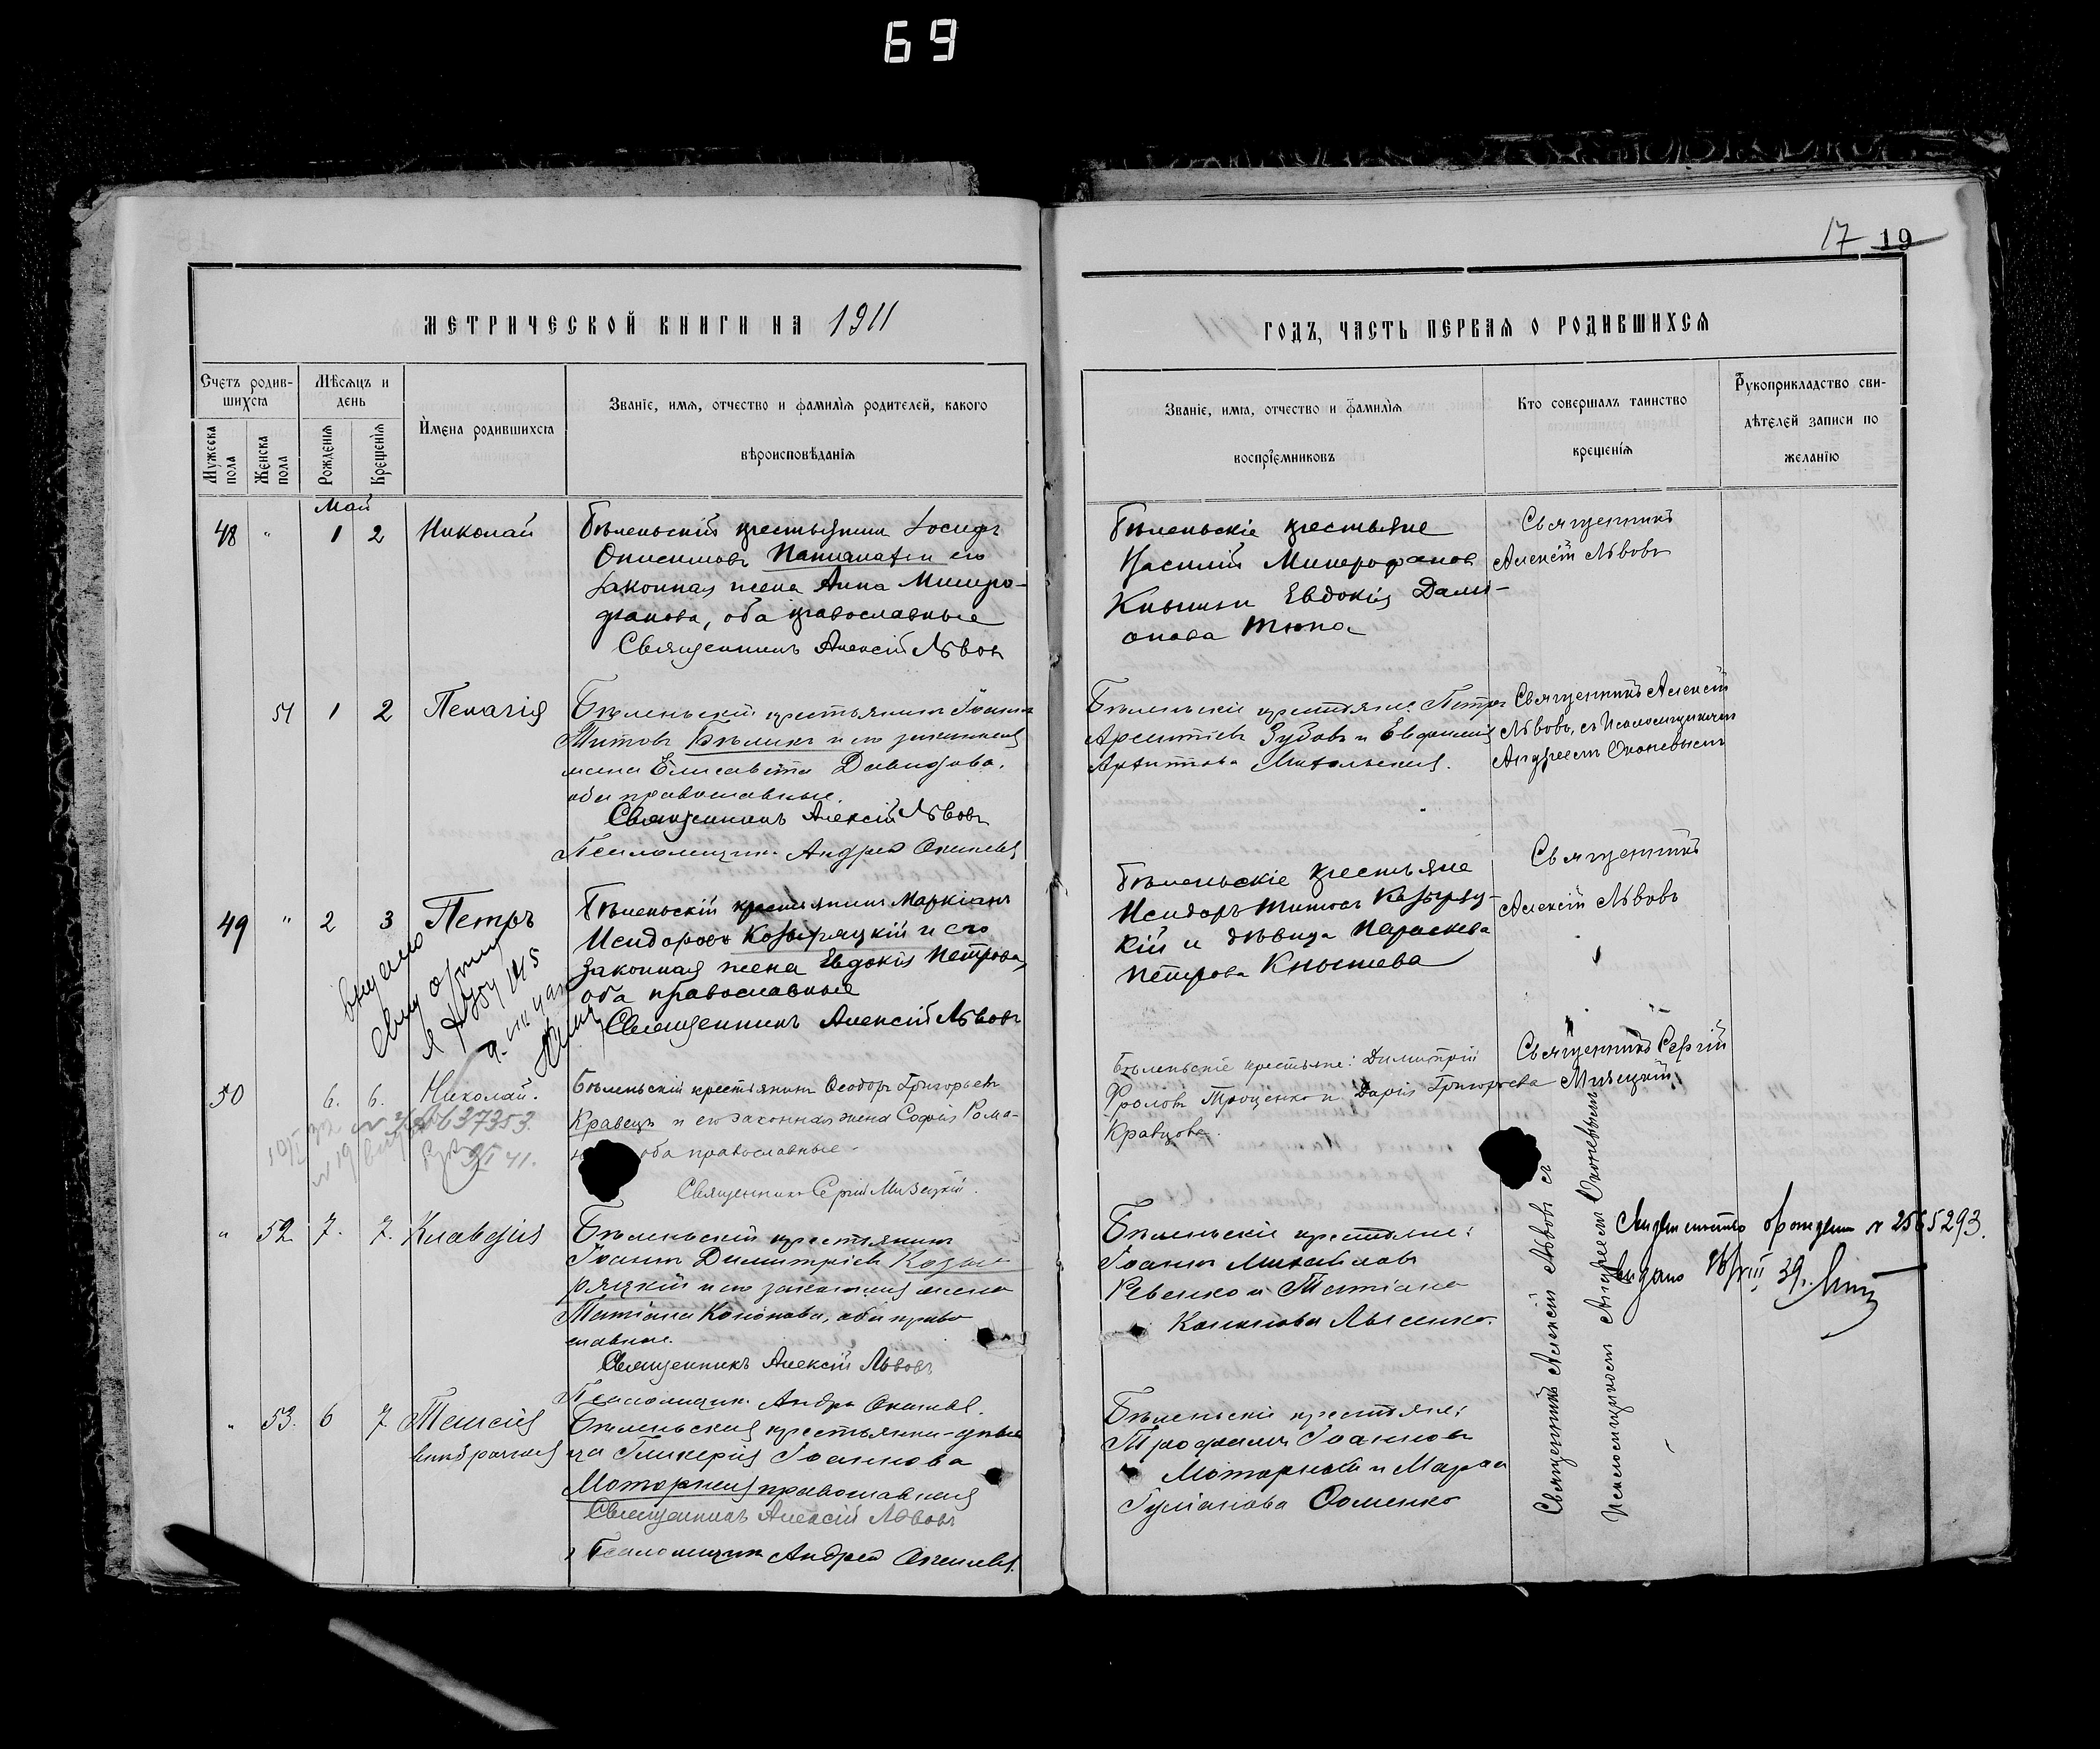 69
17 19
МЕТРИЧЕСКОЙ КНИГИ НА 1911
ГОДЪ, ЧАСТЬ ПЕРВАЯ О РОДИВШИХСЯ
Счетъ родив-
шихся
Мужеска пола
Женска пола
Мѣсяцъ и
день
Рожденія
Крещенія
Имена родившихся
Званіе, имя, отчество и фамилія родителей, какого
вѣроисповѣданія
Званіе, имя, отчество и фамилія
воспріемниковъ
Кто совершалъ таинство
крещенія
Рукоприкладство сви-
дѣтелей записи по
желанію
Май
48 " 1 2 Николай
Бѣленьскій крестьянинъ Іосифъ
Онисимовъ и его
законная жена Анна Митро-
фанова, оба православные
Священникъ Алексій Львовъ
Бѣленьскіе крестьяне
Василій Митрофановъ
Евдокія Дами-
анова
Священникъ
Алексій Львовъ
51 1 2 Пелагія
Бѣленьскій крестьянинъ Іоаннъ
Титовъ Бѣликъ и его законная
жена Елисавета Давидова,
оба православные.
Священникъ Алексій Львовъ
Псаломщикъ Андрей
Бѣленьскіе крестьяне: Петръ
Арсеніевъ Зубовъ и Евфимія
Священникъ Алексій
Львовъ, съ Псаломщикомъ
Андреемъ
49 " 2 3 Петръ
Бѣленьскій крестьянинъ Маркіанъ
Исидоровъ Козыряцкій и его
законная жена Евдокія Петрова,
оба православные
Священникъ Алексій Львовъ
Бѣленьскіе крестьяне
Исидоръ Титовъ Козыряц-
кій и дѣвица Параскева
Петрова Кнышева
Священникъ
Алексій Львовъ
50 6. 6. Николай.
Бѣленьскій крестьянинъ Ѳеодоръ Григорьевъ
Кравецъ и его законная жена Софія Рома-
оба православные.
Священникъ Сергій Мизецкій.
Бѣленьскіе крестьяне: Димитрій
Фроловъ Троценко и Дарія Григорьева
Кравцова.
Священникъ Сергій
Мизецкій.
" 52 7. 7. Клавдія
Бѣленьскій крестьянинъ
Іоаннъ Димитріевъ Козы-
ряцкій и его законная жена
Татіана Кононова, оба право-
славные.
Священникъ Алексій Львовъ
Псаломщикъ Андрей
Бѣленьскіе крестьяне:
Іоаннъ Михайловъ
Ревенко и Татіана
Лысенко.
Священникъ Алексій Львовъ съ
Псаломщикомъ Андреемъ
№ 2565293.
выдано 39.
" 53. 6 7 Таисія
внѣбрачная
Бѣленьская крестьянка-дѣви-
ца Гликерія Іоаннова
Моторная православная
Священникъ Алексій Львовъ
Псаломщикъ Андрей
Бѣленьскіе крестьяне:
Трофимъ Іоанновъ
Моторный и Марѳа
Фоменко